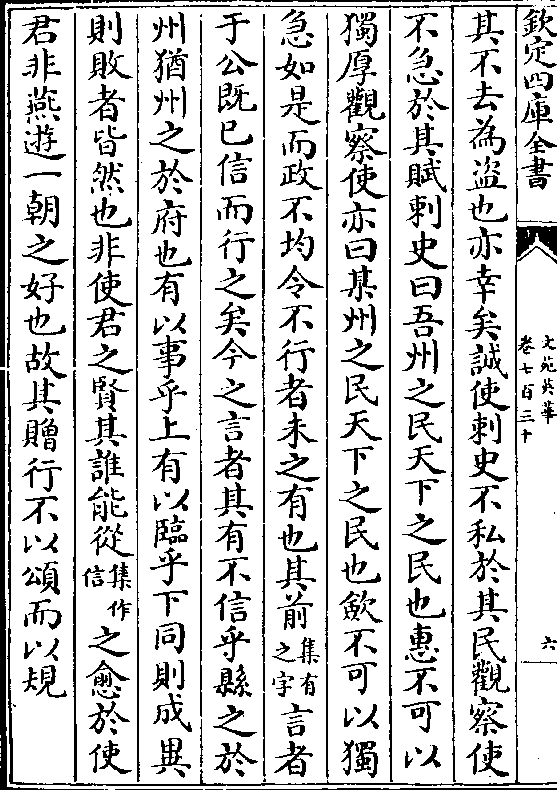 欽定四庫全書
文苑英華
卷七百三十
六
其不去為盜也亦幸矣誠使刺史不私於其民觀察使
不急於其賦刺史曰吾州之民天下之民也惠不可以
獨厚觀察使亦曰某州之民天下之民也斂不可以獨
急如是而政不均令不行者未之有也其前集有之字言者
于公既已信而行之矣今之言者其有不信乎縣之於
州猶州之於府也有以事乎上有以臨乎下同則成異
則敗者皆然也非使君之賢其誰能從集作信之愈於使
君非燕遊一朝之好也故其贈行不以頌而以規